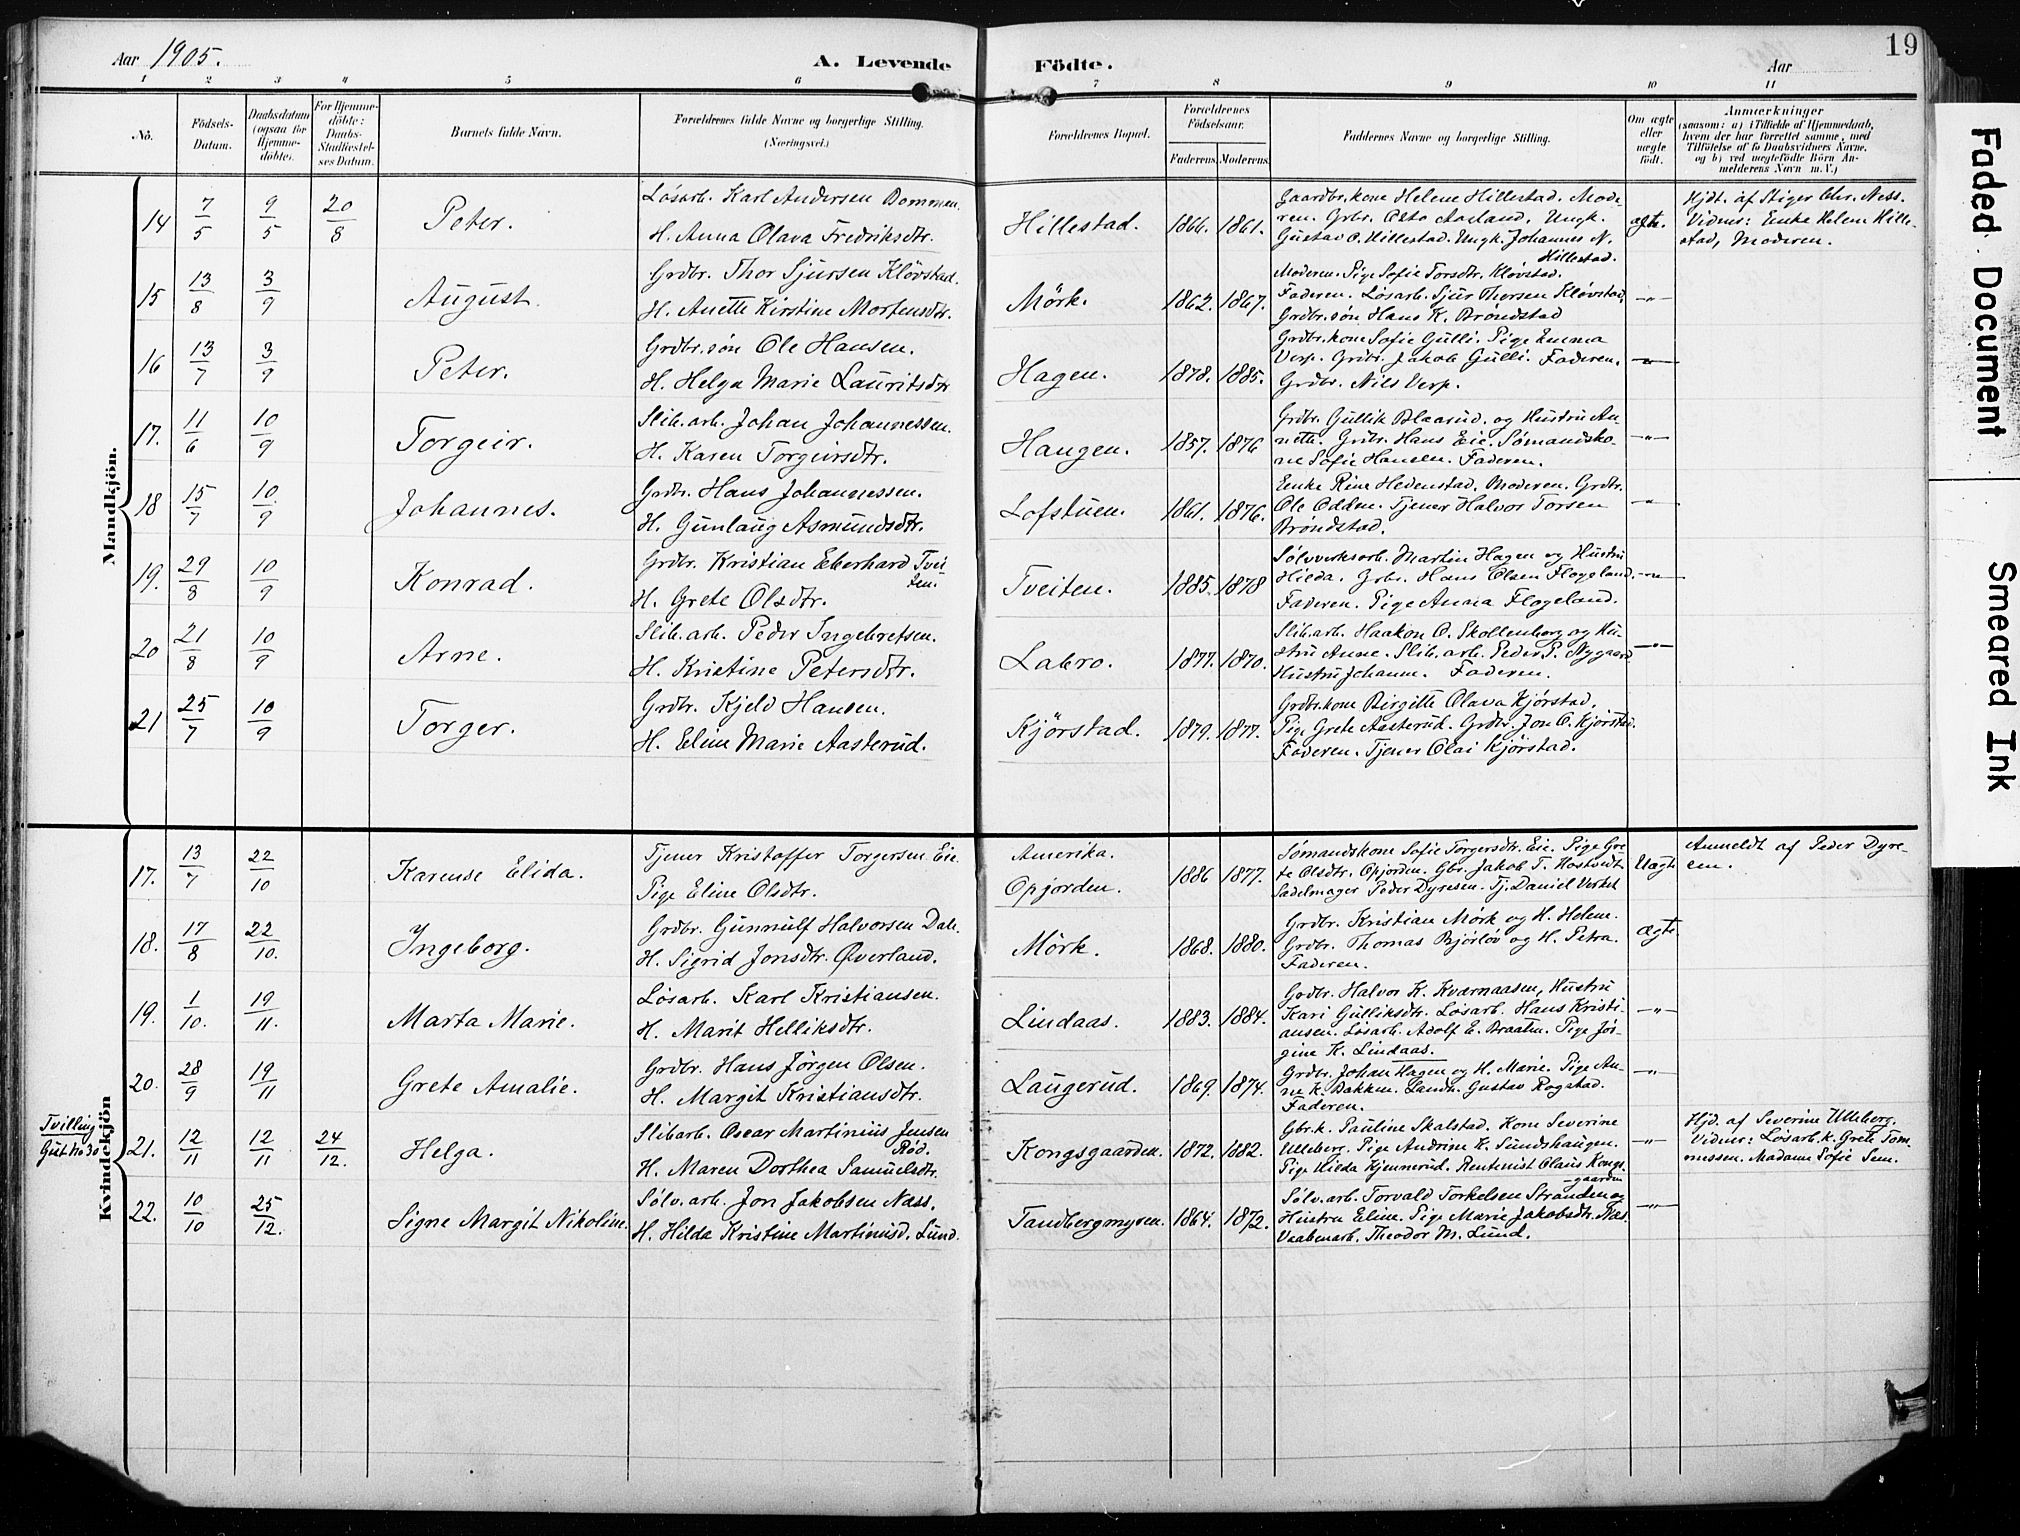 Aar 1905.
A. Levende Födte.
Aar
19
1 2 3 4 5 6 7 8 9 10 11
Nö.
Födsels-Datum.
Daabsdatum (ogsaa for Hjemme-döbte).
For Hjemme-döbte: Daabs-Stadfæstel-ses Datum.
Barnets fulde Navn.
Forældrenes fulde Navne og borgerlige Stilling.
(Næringsvei.)
Forældrenes Bopæl.
Forældrenes Födselsaar.
Faderens. Moderens.
Faddernes Navne og borgerlige Stilling.
Om ægte eller uægte födt.
Anmærkninger
(saasom: a) i Tilfælde af Hjemmedaab,
hvem der har forrettet samme, med
Tilföielse af to Daabsvidners Navne.
og b) ved uægtefödte Börn An-
melderens Navn m. V.)
Mandkjön.
14 7/5 9/5 20/8 Peter.
Løsarb. Karl Andersen Dommen.
H. Anna Olava Fredriksdtr.
Hillestad. 1866. 1861.
Gaardbr.kone Helene Hillestad. Mode-
ren. Grbr. Otto Aasland. Ungk.
Gustav O. Hillestad. Ungk. Johannes N.
Hillestad.
ægte.
Hjdt. af Stiger Chr. Ness.
Vidner: Enke Helene Hille-
stad, Moderen.
15 13/8 3/9 August.
Grdbr. Thor Sjursen Kløvstad.
H. Anette Kirstine Mortensdtr.
Mörk. 1862. 1867.
Moderen. Pige Sofie Torsdtr. Kløvstad.
Faderen. Løsarb. Sjur Thorsen Kløvstad,
Grdbr.søn Hans K. Brøndstad
—"—
16 13/7 3/9 Peter.
Grdbr.søn Ole Hansen.
H. Helga Marie Lauritsdtr
Hagen. 1878. 1885.
Grdbr.kone Sofie Gulli. Pige Emma
Verp. Grdbr. Jakob Gulli. Faderen.
Grdbr. Nils Verp.
—"—
17. 11/6 10/9 Torgeir.
Slib.arb. Johan Johannessen.
H. Karen Torgeirsdtr.
Haugen. 1857. 1876
Grdbr. Gullik Blaarud, og Hustru An-
nette. Grdbr. Hans Eie. Sømandsko-
ne Sofie Hansen. Faderen.
—"—
18 15/7 10/9 Johannes.
Grdbr. Hans Johannessen.
H. Gunlaug Asmundsdtr.
Lofstuen. 1861. 1876.
Enke Rine Hedenstad. Moderen. Grdbr.
Ole Odden. Tjener Halvor Torsen
Brøndstad.
—"—
19. 29/8 10/9 Konrad.
Grdbr. Kristian Eberhard Tvei-
ten.
H. Grete Olsdtr.
Tveiten. 1885. 1878
Sølvverksarb. Martin Hagen og Hustru
Hilda. Grbr. Hans Olsen Flogeland.
Faderen. Pige Anna Flogeland.
—"—
20 21/8 10/9 Arne.
Slib.arb. Peder Ingebretsen.
H. Kristine Petersdtr.
Labro. 1877. 1870.
Slib.arb. Haakon O. Skollenborg og Hu-
stru Anne. Slib.arb. Peder P. Nygaard
Hustru Johanne. Faderen.
—"—
21 25/7 10/9 Torger.
Grdbr. Kjeld Hansen.
H. Eline Marie Aasterud.
Kjörstad. 1879. 1877.
Grdbr.kone Birgitte Olava Kjørstad,
Pige Grete Aasterud. Grdbr. Jon O. Kjørstad.
Faderen. Tjener Olai Kjørstad.
Kvindekjön
17. 13/7 22/10 Karense Elida.
Tjener Kristoffer Torgersen Eie
Pige Eline Olsdtr.
Amerika.
Opjorden. 1886 1877.
Sømandskone Sofie Torgersdtr. Eie. Pige Gre-
te Olsdtr. Opjorden. Gbr. Jakob T. Hostvedt
Sadelmager Peder Dyresen. Tj. Daniel Verket
Uægte
Anmeldt af Peder Dyre-
sen.
18. 17/8 22/10. Ingeborg.
Grdbr. Gunnulf Halvorsen Dale.
H. Sigrid Jonsdtr. Øverland.
Mörk. 1868. 1880.
Grdbr. Kristian Mørk og H. Helene.
Grdbr. Thomas Bjørløv og H. Petra.
Faderen.
ægte.
19. 1/10. 19/11. Marta Marie.
Løsarb. Karl Kristiansen.
H. Marit Helliksdtr.
Lindaas. 1883. 1884.
Grdbr. Halvor K. Kværnaasen, Hustru
Kari Gulliksdtr. Løsarb. Hans Kristi-
ansen. Løsarb. Adolf E. Braaten. Pige Jör-
gine K. Lindaas.
—"—
20. 28/9 19/11 Grete Amalie.
Grdbr. Hans Jörgen Olsen.
H. Margit Kristiansdtr.
Laugerud. 1869. 1874.
Grdbr. Johan Hagen og H. Marie. Pige An-
ne K. Bakken. Landh. Gustav Rogstad.
Faderen.
—"—
Tvilling
Gut No 30
21. 12/11 12/11 24/12. Helga.
Slibarb. Oscar Martinius Jensen
Rød.
H. Maren Dorthea Samuelsdtr.
Kongsgaarden. 1872. 1882.
Gbr.k. Pauline Skalstad. Kone Severine
Ulleberg. Pige Andrine K. Sundshaugen.
Pige Hilda Kjennerud. Rentenist Claus Kongs-
gaarden
—"—
Hjd. af Severine Ulleberg.
Vidner: Løsarb.k. Grete Tom-
messen. Madame Sofie Sem.
22. 10/10 25/12. Signe Margit Nikoline.
Sølv.arb. Jon Jakobsen Næss.
H. Hilda Kristine Martinusd. Lund.
Tandbergmyren. 1864. 1872.
Sølv.arb. Torvald Torkelsen Stranden og
Hustru Eline. Pige Marie Jakobsdtr. Næs.
Vaabenarb. Theodor M. Lund.
—"—
Faded Document
Smeared Ink